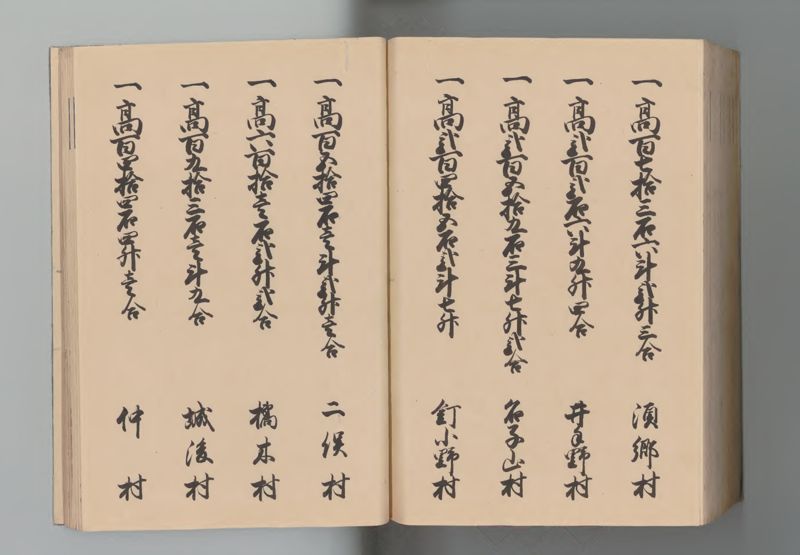 一高百七拾三石六斗弐升三合 須郷村
一高弐百弐石六斗九升四合 井手野村
一高弐百五拾九石三斗七升弐合 名子山村
一高弐百四拾五石弐斗七升 釘小野村
一高百五拾四石壱斗弐升壱合 二俣村
一高六百拾壱石弐升弐合 橘木村
一高百九拾三石壱斗九合 城後村
一高百四拾四石四升壱合 仲村